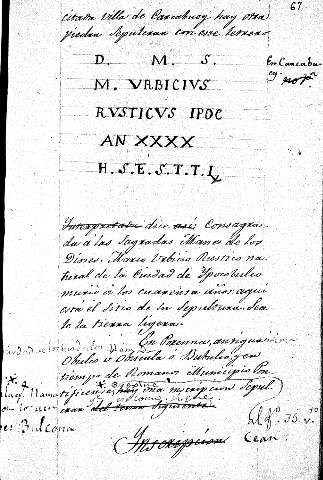 67
citada Villa de Carcabuey hay otra
piedra Sepulcral con este letrero.
En Carcabuey
D. M. S.
M. VRBICIVS
RVSTICVS IPOC
AN XXXX
H.S.E.S.T.T.L
Interpretada dice así Consagrada
a los Sagrados Manes de los
Dioses. Marco Urbicio Rustico natural
de la Ciudad de Ypocobulco
murió a los cuarenta años aquí
está el Sitio de su Sepultura. Seate
la tierra ligera.
En Porcuna, antiguamente
Obulco ó Obulcula ó Bulculo y en
tiempo de Romanos Municipio Pontificense,
hay una inscripcion Sepulcral
del tenor siguiente
Al fº 35 vº
Cean.
Inscripcion